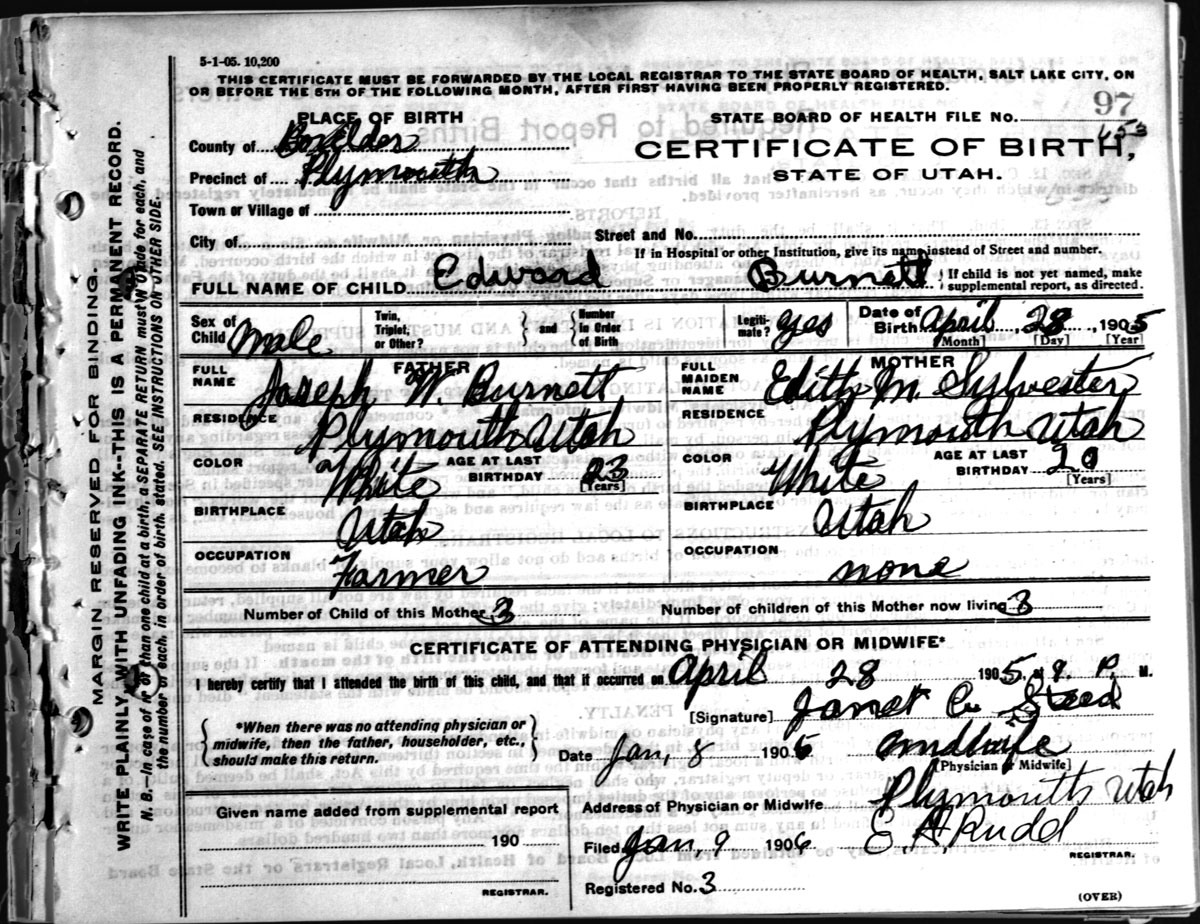 5-1-05. 10,200
THIS CERTIFICATE MUST BE FORWARDED BY THE LOCAL REGISTRAR TO THE STATE BOARD OF HEALTH, SALT LAKE CITY, ON
OR BEFORE THE 5TH OF THE FOLLOWING MONTH, AFTER FIRST HAVING BEEN PROPERLY REGISTERED.
PLACE OF BIRTH
STATE BOARD OF HEALTH FILE No. 97
453
County of Boxelder
CERTIFICATE OF BIRTH,
Precinct of Plymouth
STATE OF UTAH.
Town or Village of
City of
Street and No.
If in Hospital or other Institution, give its name instead of Street and number.
FULL NAME OF CHILD Edward Burnett { If child is not yet named, make
supplemental report, as directed.
Sex of Child Male
Twin, Triplet, or Other? } and { Number in Order of Birth
Legiti-mate? yes
Date of Birth April, 28, 1905
[Month] [Day] [Year]
FATHER
MOTHER
FULL NAME Joseph W. Burnett
FULL MAIDEN NAME Edith M. Sylvester
RESIDENCE Plymouth Utah
RESIDENCE Plymouth Utah
COLOR White AGE AT LAST BIRTHDAY 23 [Years]
COLOR White AGE AT LAST BIRTHDAY 20 [Years]
BIRTHPLACE Utah
BIRTHPLACE Utah
OCCUPATION Farmer
OCCUPATION none
Number of Child of this Mother 3
Number of children of this Mother now living 3
CERTIFICATE OF ATTENDING PHYSICIAN OR MIDWIFE*
I hereby certify that I attended the birth of this child, and that it occurred on April 28 1905, 9 P. M.
[Signature] Janet Steed
{ *When there was no attending physician or
midwife, then the father, householder, etc.,
should make this return. }
Date Jan, 8 1906 midwife
[Physician or Midwife]
Address of Physician or Midwife Plymouth Utah
Given name added from supplemental report
190
Filed Jan, 9 1906 E. A. Rudd
REGISTRAR.
Registered No. 3
REGISTRAR.
(OVER)
MARGIN RESERVED FOR BINDING.
WRITE PLAINLY WITH UNFADING INK--THIS IS A PERMANENT RECORD.
N. B.--In case of more than one child at a birth, a SEPARATE RETURN must be made for each, and
the number of each, in order of birth stated. SEE INSTRUCTIONS ON OTHER SIDE.